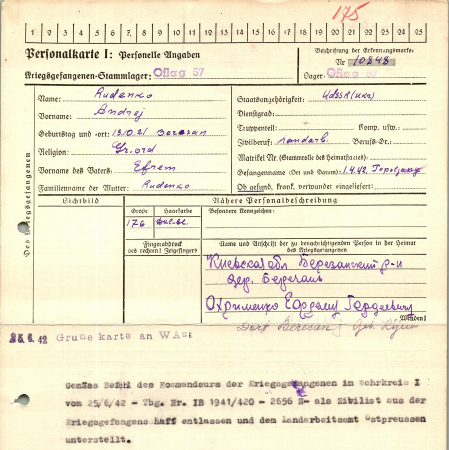 175
1 2 3 4 5 6 7 8 9 10 11 12 13 14 15 16 17 18 19 20 21 22 23 24 25
Personalkarte I: Personelle Angaben
Kriegsgefangenen-Stammlager: Oflag 57
Beschriftung der Erkennungsmarke:
Nr. 10848
Lager: Oflag 57
Des Kriegsgefangenen
Name: Rudenko
Vorname: Andrej
Geburtstag und -ort: 13.10.21 Beresan
Religion: Gr. ord
Vorname des Vaters: Efrem
Familienname der Mutter: Rudenko
Staatsangehörigkeit: UdSSR (Ukr)
Dienstgrad:
Truppenteil: Komp. usw.:
Zivilberuf: Landarb. Berufs-Gr.:
Matrikel Nr. (Stammrolle des Heimatstaates):
Gefangennahme (Ort und Datum): 1.4.42,
Ob gesund, krank, verwundet eingeliefert:
Lichtbild
Nähere Personalbeschreibung
Größe Haarfarbe Besondere Kennzeichen:
176
Fingerabdruck
des rechten Zeigefingers
Name und Anschrift der zu benachrichtigenden Person in der Heimat
des Kriegsgefangenen
Киевская обл Березанский р-н
дер. Березань
Охрименко Гордеевич
Wenden!
Dorf Beresan, Geb. Kijew
25.6.42 Grüne karte an WASt
Gemäss Befehl des Kommandeurs der Kriegsgefangenen in Wehrkreis I
vom 25/6/42 - Tbg. Nr. IB 1941/420 - 2656 N- als Zivilist aus der
Kriegsgefangenschaff entlassen und dem Landarbeitsamt Ostpreussen
unterstellt.